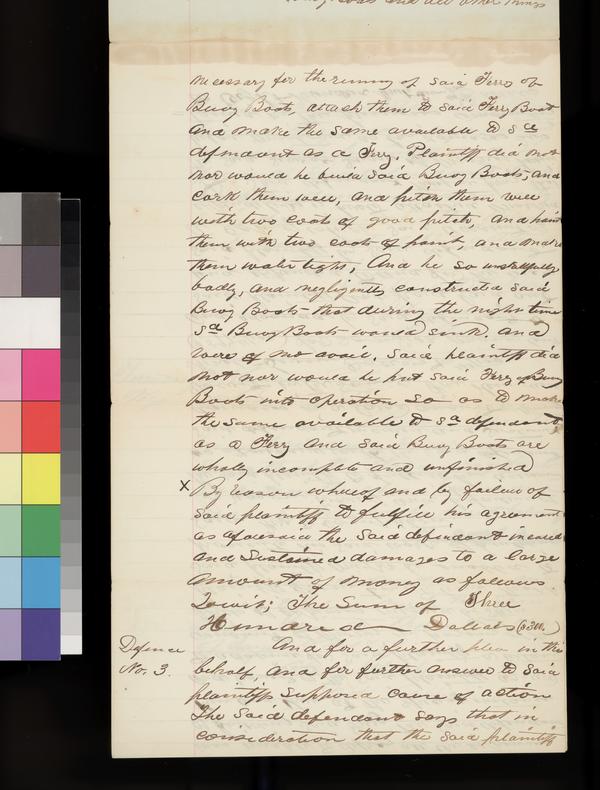 and all other things
necessary for the running of said Ferry of
Buoy Boats, attach them to said Ferry Boat
and make the same available to sd
defendant as a Fery. Plaintiff did not
nor would he build said Buoy Boats, and
cork them well, and pitch them well
with two coats of good pitch, and paint
them with two coats of paint, and make
them water tight, And he so unskillfully
badly, and negligently constructed said
Buoy Boats that during the night time
sd Buoy Boats would sink. and
were of no avail. Said plaintiff did
not nor would he put said Ferry & Buoy
Boats into operation so as to make
the same available to sd defendant
as a Ferry and said Buoy Boats are
wholly incomplete and unfinished
x By reason whereof and by failure of
said plaintiff to fulfill his agreement
as aforesaid the said defendant incured
and Sustained damages to a large
amount of money as follows
Towit; The Sum of Three
Hundred Dollars ($300.)
Defence And for a further plea in this
No. 3. behalf and for further answer to said
plaintiffs Supposed cause of action
The Said defendant says that in
consideration that the said plaintiff